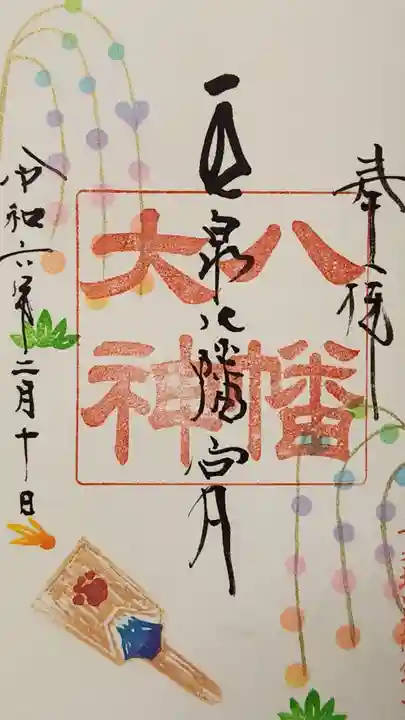 奉拝
泉八幡宮
八幡
大神
令和六年二月十日